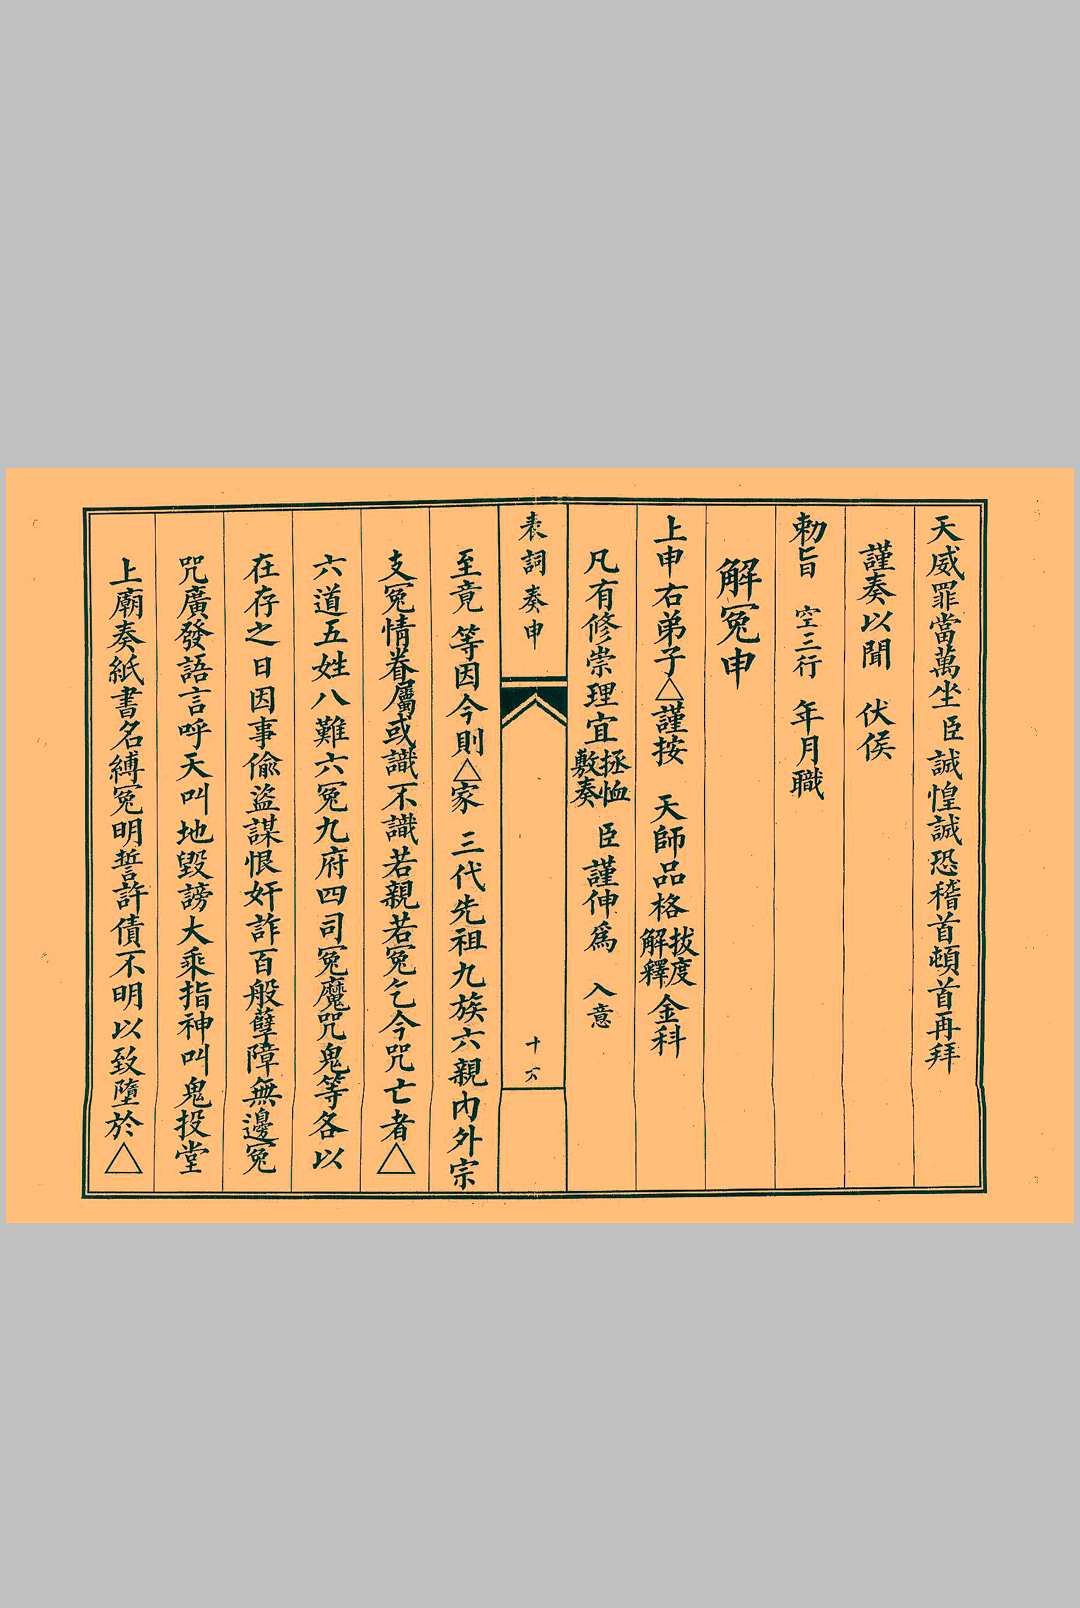 天威罪當萬坐臣誠惶誠恐稽首頓首再拜
謹奏以聞　伏侯
勅旨　空三行　年月職
解冤申
上申右弟子△謹按　天師品格拔度解釋金科
凡有修崇理宜拯恤敷奏　臣謹伸爲　入意
表詞奏申
十六
至竟等因今則△家三代先祖九族六親內外宗
支冤情眷屬或識不識若親若冤乞今咒亡者△
六道五姓八難六冤九府四司冤魔咒鬼等各以
在存之日因事偷盜謀恨奸詐百般孽障無邊冤
咒廣發語言呼天叫地毀謗大乘指神叫鬼投堂
上廟奏紙書名縛冤明誓許債不明以致墮於△